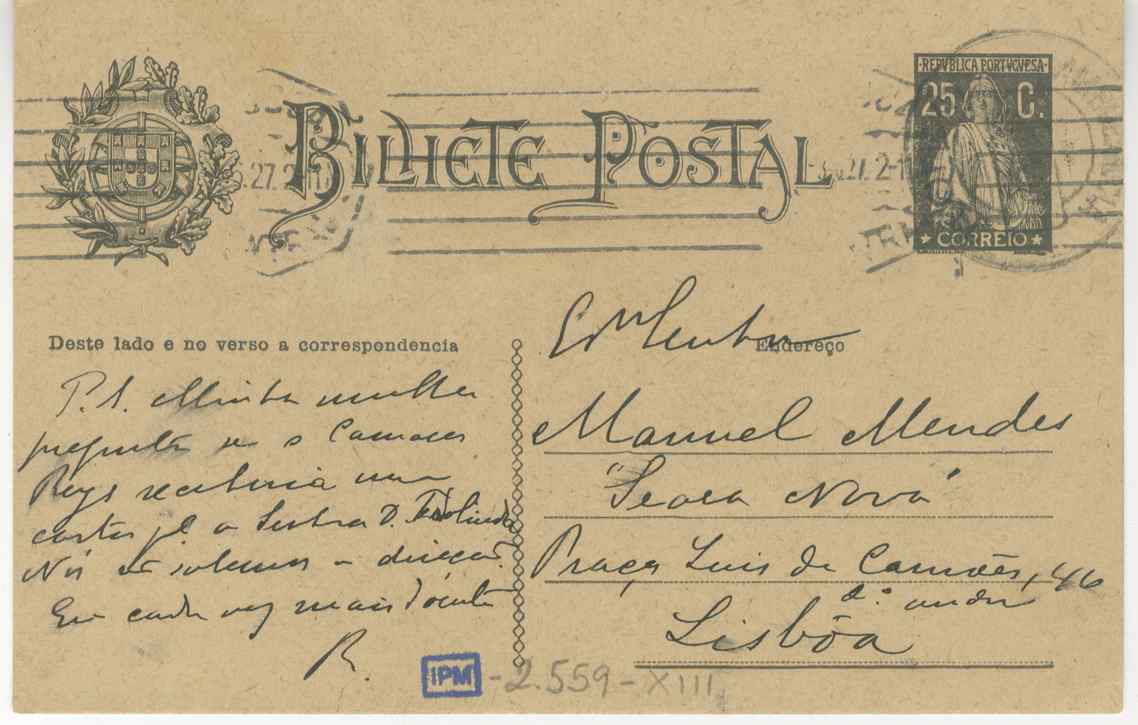 BILHETE POSTAL
·REPVBLICA PORTVGVESA·
25 C.
CORREIO
27.2
27.2-1
Deste lado e no verso a correspondencia
Endereço
P.S. Minha mulher
pregunta se o Camara
Reys receberia uma
carta pª a Senhora D.
Nós não sabemos a direcção.
Eu cada vez mais doente
R.
Exmo Senhor
Manuel Mendes
"Seara Nova"
Praça Luis de Camões, 46
2.º andar
Lisbôa
IPM - 2.559 - XIII